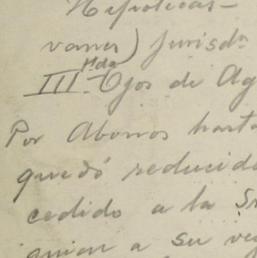 Hipotecas-
varias) jurisdn
III. Hda Ojos de Ag
Por Abonos hasta
quedó reducida
cedido a la Sr
quien a su vez